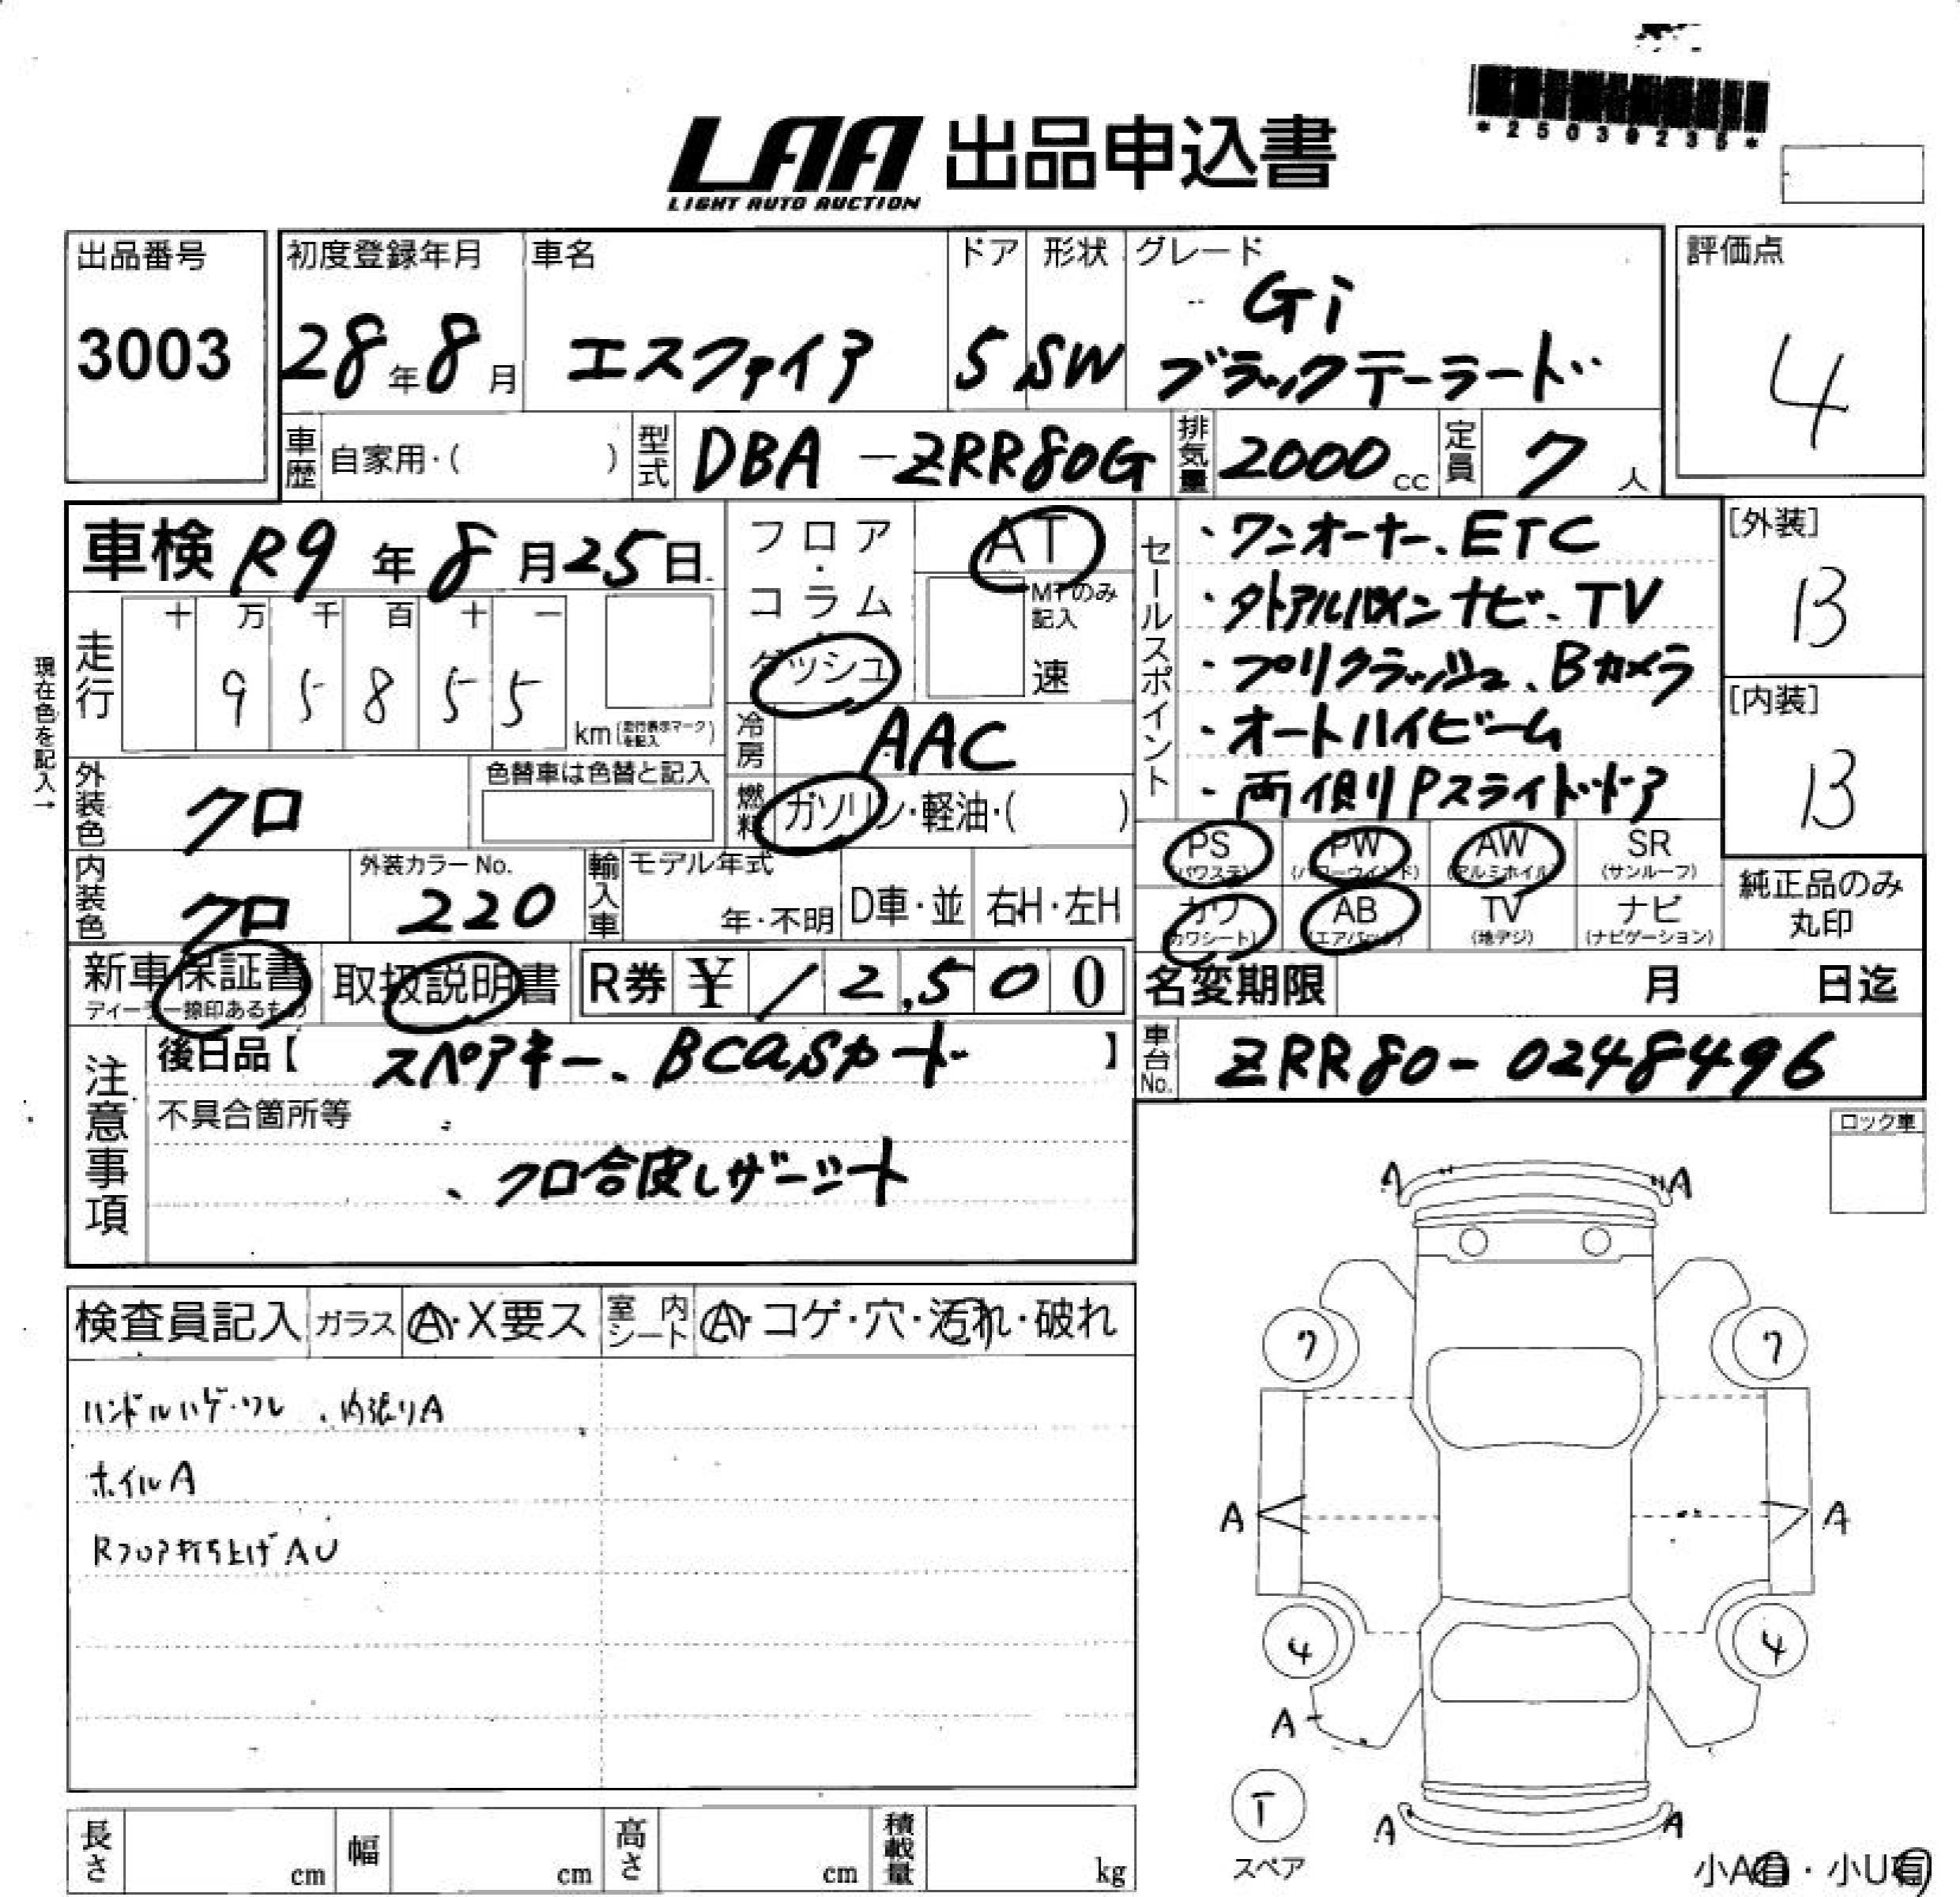 *25039235*
LAA 出品申込書
LIGHT AUTO AUCTION
出品番号
3003
初度登録年月
28年8月
車名
エスファイア
ドア
5
形状
SW
グレード
Gi
ブラックテーラード
評価点
4
車歴 自家用・( )
型式 DBA-ZRR80G
排気量 2000cc
定員 7人
車検 R9年8月25日
フロア・コラム・ダッシュ
AT
MTのみ記入
速
セールスポイント
・ワンオーナー、ETC
・タトアルパメンナビ、TV
・プリクラッシュ、Bカメラ
・オートハイビーム
・両側リPスライドドア
[外装]
B
[内装]
B
現在色を記入→
走行
十 万 千 百 十 一
9 5 8 5 5
km(走行表示マークを記入)
冷房 AAC
燃料 ガソリン・軽油・( )
外装色 クロ
色替車は色替と記入
内装色 クロ
外装カラーNo.
220
輸入車
モデル年式
年・不明
D車・並
右H・左H
PS (パワステ)
PW (パワーウインド)
AW (アルミホイル)
SR (サンルーフ)
カワ (カワシート)
AB (エアバッグ)
TV (地デジ)
ナビ (ナビゲーション)
純正品のみ
丸印
新車保証書
ディーラー捺印あるもの
取扱説明書
R券 ¥ 12,500
名変期限 月 日迄
車台No. ZRR80-0248496
注意事項
後日品【 スペアキー、BCaSカード 】
不具合箇所等
、クロ合皮レザーシート
ロック車
検査員記入
ガラス
A・X要ス
室内シート
A・コゲ・穴・汚れ・破れ
ハンドルハゲ・ワレ、内張りA
ホイルA
Rフロア打ち上げAU
A A
7 7
A A
4 4
A
T
スペア
A A
小A有・小U有
長さ cm
幅 cm
高さ cm
積載量 kg